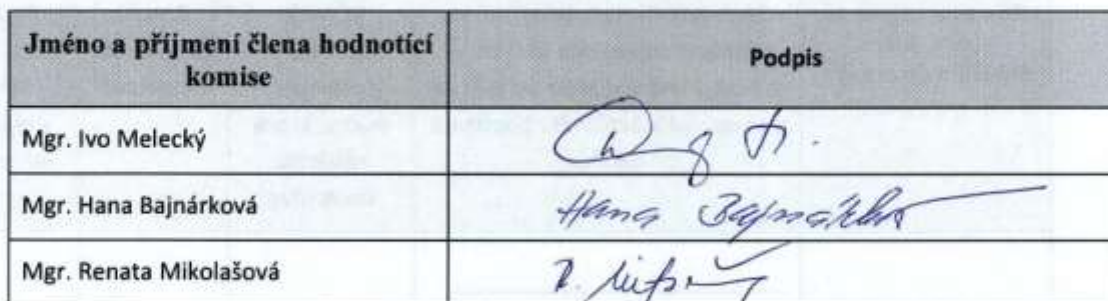 Jméno a příjmení člena hodnotící
komise
Podpis
Mgr. Ivo Melecký
Mgr. Hana Bajnárková
Hana Bajnárková
Mgr. Renata Mikolašová
R.